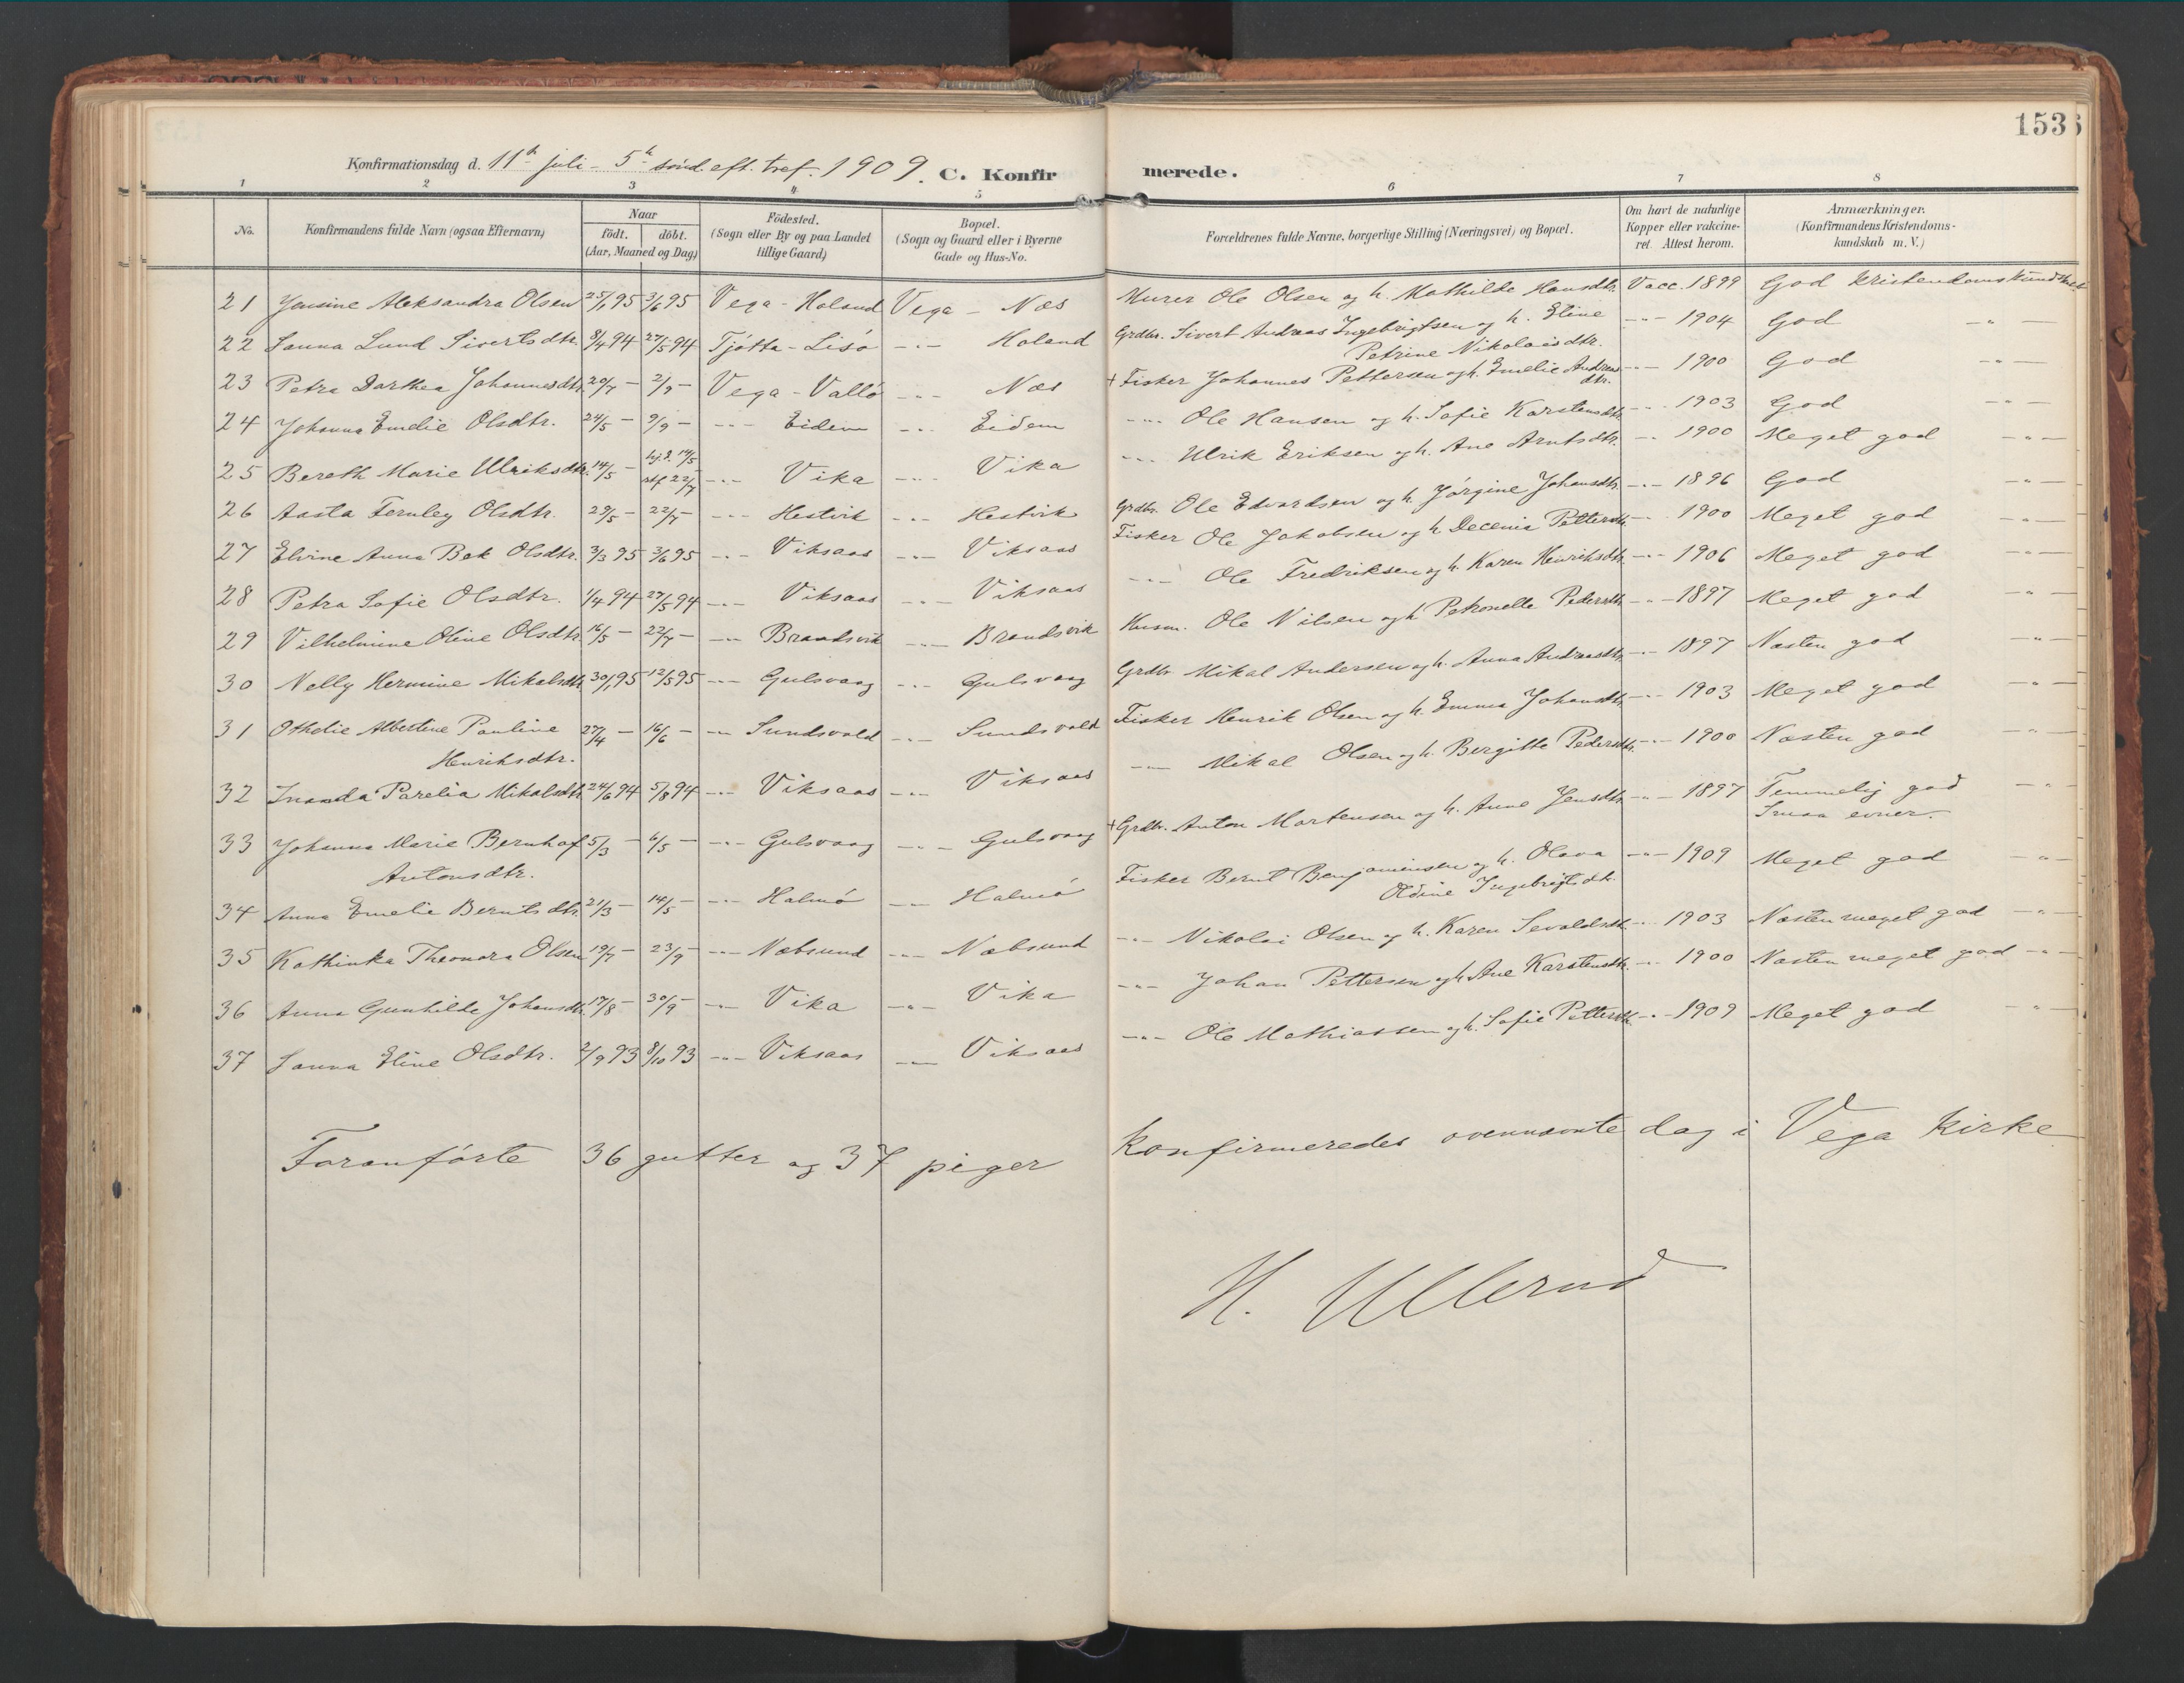 153
Konfirmationsdag d. 11te juli - 5te sönd. eft. tref. 1909. C. Konfirmerede.
1 2 3 4 5 6 7 8
No. Konfirmandens fulde Navn (ogsaa Efternavn) Naar födt. döbt. (Aar, Maaned og Dag) Födested. (Sogn eller By og paa Landet tillige Gaard) Bopæl. (Sogn og Gaard eller i Byerne Gade og Hus-No. Forældrenes fulde Navne, borgerlige Stilling (Næringsvei) og Bopæl. Om havt de naturlige Kopper eller vaccineret. Attest herom. Anmærkninger. (Konfirmandens Kristendomskundskab m. V.)
21 Jensine Aleksandra Olsen 25/1 95 3/6 95 Vega - Holand Vega - Næs Murer Ole Olsen og h. Mathilde Hansdtr. Vacc. 1899 God Kristendomskundskab
22 Sanna Lund Sivertsdtr. 8/4 94 27/5 94 Tjötta - Lisö -"- Holand Grdbr. Sivert Andreas Ingebrigtsen og h. Eline -"- 1904 God -"-
Petrine Nikolaisdtr.
23 Petra Darthea Johannesdtr. 20/7 - 2/9 - Vega - Vallö -"- Næs + Fisker Johannes Pettersen og h. Emelie Andreasdtr. -"- 1900 God -"-
24 Johanna Emelie Olsdtr. 24/5 - 9/9 - -"- Eidem -"- Eidem -"- Ole Hansen og h. Sofie Karstensdtr. -"- 1903 God -"-
25 Bereth Marie Ulriksdtr. 14/5 - hjd. 14/5 stf 22/7 -"- Vika -"- Vika -"- Ulrik Eriksen og h. Ane Arntsdtr. -"- 1900 Meget god -"-
26 Aasta Fernley Olsdtr. 29/5 - 22/7 - -"- Hestvik -"- Hestvik Grdbr. Ole Edvardsen og h. Jörgine Johansdtr. -"- 1896 God -"-
27 Elvine Anna Bek Olsdtr. 3/3 95 3/6 95 -"- Viksaas -"- Viksaas Fisker Ole Jakobsen og h. Decenia Pettersdtr. -"- 1900 Meget god -"-
28 Petra Sofie Olsdtr. 1/4 94 27/5 94 -"- Viksaas -"- Viksaas -"- Ole Fredriksen og h. Karen Henriksdtr. -"- 1906 Meget god -"-
29 Vilhelmine Oline Olsdtr. 16/5 - 22/7 - -"- Brandsvik -"- Brandsvik Husm. Ole Nilsen og h. Petronelle Pedersdtr. -"- 1897 Meget god -"-
30 Nelly Hermine Mikalsdtr. 30/1 95 12/5 95 -"- Gulsvaag -"- Gulsvaag Grdbr. Mikal Andersen og h. Anna Andreasdtr. -"- 1897 Næsten god -"-
31 Othelie Albertine Pauline 27/4 - 16/6 - -"- Sundsvold -"- Sundsvold Fisker Henrik Olsen og h. Emma Johansdtr. -"- 1903 Meget god -"-
Henriksdtr.
32 Inanda Parelia Mikalsdtr. 24/6 94 5/8 94 -"- Viksaas -"- Viksaas -"- Mikal Olsen og h. Bergitte Pedersdtr. -"- 1900 Næsten god -"-
33 Johanna Marie Bernhof 5/3 - 6/5 - -"- Gulsvaag -"- Gulsvaag + Grdbr. Anton Mortensen og h. Anne Jensdtr. -"- 1897 Temmelig god -"-
Antonsdtr. Smaa evner.
34 Anna Emelie Berntsdtr. 21/3 - 14/5 - -"- Halmö -"- Halmö Fisker Bernt Benjaminsen og h. Olava -"- 1909 Meget god -"-
Oldine Ingebrigtsdtr.
35 Kathinka Theonora Olsen 19/7 - 23/9 - -"- Næbsund -"- Næbsund -"- Nikolai Olsen og h. Karen Sevaldsdtr. -"- 1903 Næsten meget god -"-
36 Anna Gunhilde Johansdtr. 17/8 - 30/9 - -"- Vika -"- Vika -"- Johan Pettersen og h. Ane Karstensdtr. -"- 1900 Næsten meget god -"-
37 Sanna Eline Olsdtr. 2/9 93 8/10 93 -"- Viksaas -"- Viksaas -"- Ole Mathiassen og h. Sofie Pettersdtr. -"- 1909 Meget god -"-
Foranförte 36 gutter og 37 piger konfirmeredes ovennævnte dag i Vega kirke
H. Ullerud